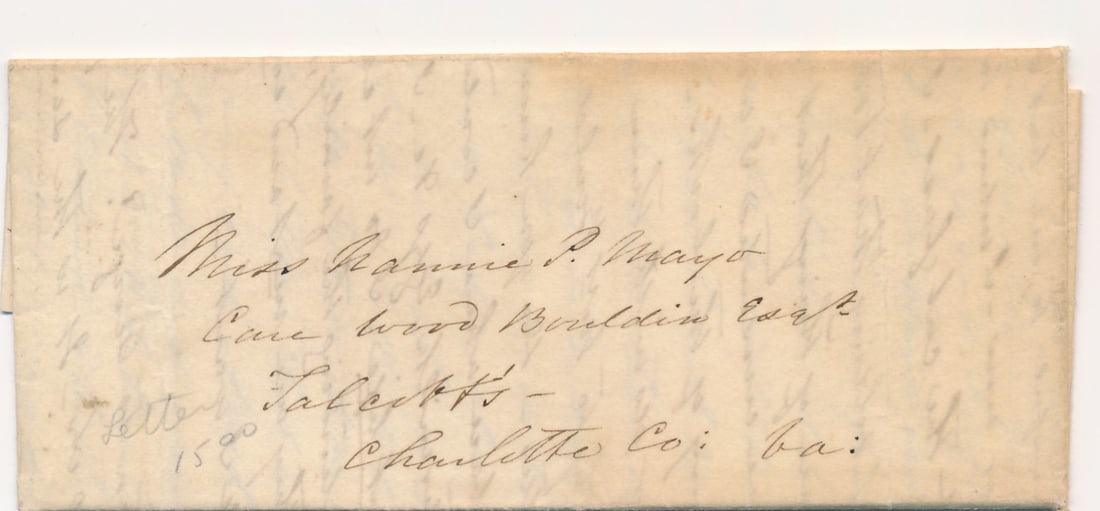 Miss Nannie P. Mayo
Care Wood Bouldin Esqr
Talcott's -
Charlotte Co: Va:
Letter
15 00